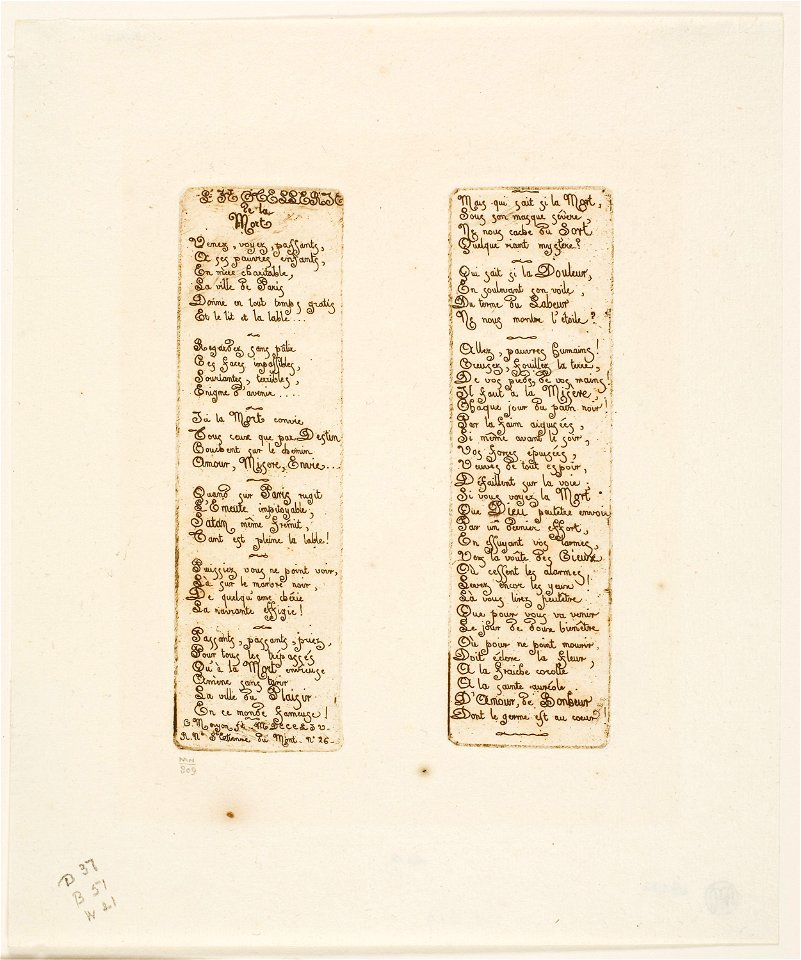 L'HÔTELLERIE
de la
Mort
Venez, voyez, passants,
A ses pauvres enfants,
En mère charitable,
La ville de Paris
Donne en tout temps gratis
Et le lit et la table...
Regardez sans pâlir
Ces faces impassibles,
Souriantes, terribles,
Enigme d'avenir.....
Ici la Mort convie
Tous ceux que par Destin
Couchent sur le chemin
Amour, Misère, Envie...
Quand sur Paris rugit
L'Emeute impitoyable,
Satan même frémit,
Tant est pleine la table!
Puissiez vous ne point voir,
Là sur le marbre noir,
De quelqu'ame chérie
La navrante effigie!
Passants, passants, priez,
Pour tous les trépassés
Qu'à la Mort envieuse
Amène sans tarir
La ville du Plaisir
En ce monde fameuse!
C. Meryon ft. MDCCCLIV.
R. Nve St Etienne du Mont. No 26.
Mais qui sait si la Mort,
Sous son masque sévère,
Ne nous cache du Sort
Quelque riant mystère?
Qui sait si la Douleur,
En soulevant son voile,
Du terme du Labeur
Ne nous montre l'étoile?
Allez, pauvres humains!
Creusez, fouillez la terre,
De vos pieds, de vos mains!
Il faut à la Misère,
Chaque jour du pain noir!
Par la faim aiguisées,
Si même avant le soir,
Vos forces épuisées,
Veuves de tout espoir,
Défaillent sur la voie,
Si vous voyez la Mort
Que Dieu peutêtre envoie
Par un dernier effort,
En essuyant vos larmes,
Vers la voûte des Cieux
Où cessent les alarmes,
Levez encor les yeux!
Là vous lirez peutêtre
Que pour vous va venir
Le jour de doux bienêtre
Où pour ne point mourir
Doit éclore la fleur,
A la fraîche corolle
A la sainte auréole
D'Amour, de Bonheur
Dont le germe est au cœur!
MN
809
D 37
B 51
W 21